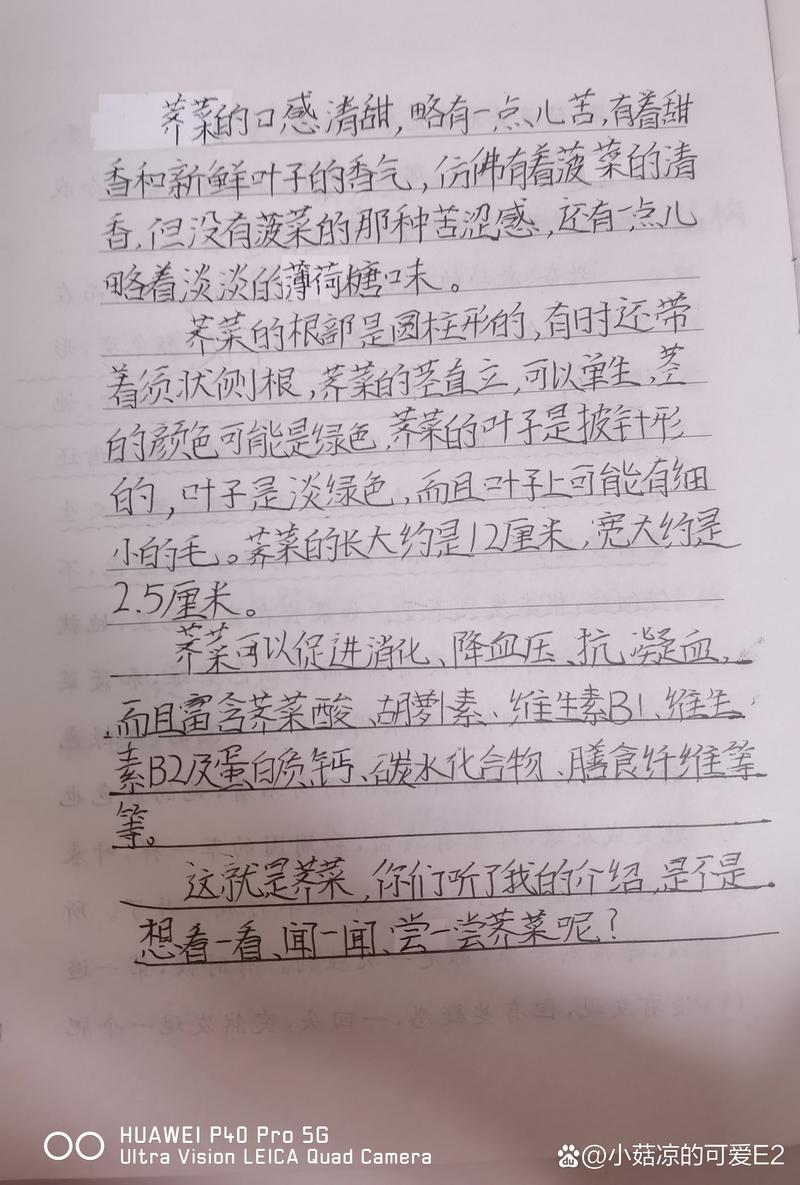 荠菜的口感清甜,略有一点儿苦,有着甜
香和新鲜叶子的香气,仿佛有着菠菜的清
香,但没有菠菜的那种苦涩感,还有一点儿
略着淡淡的薄荷糖口味。
荠菜的根部是圆柱形的,有时还带
着须状侧根,荠菜的茎直立,可以单生,茎
的颜色可能是绿色,荠菜的叶子是披针形
的,叶子是淡绿色,而且叶子上可能有细
小的毛。荠菜的长大约是12厘米,宽大约是
2.5厘米。
荠菜可以促进消化、降血压、抗凝血,
而且富含荠菜酸、胡萝素、维生素B1、维生
素B2及蛋白质钙、碳水化合物、膳食纤维等
等。
这就是荠菜,你们听了我的介绍,是不是
想看一看、闻一闻、尝一尝荠菜呢?
HUAWEI P40 Pro 5G
Ultra Vision LEICA Quad Camera
Bai du @小菇凉的可爱E2